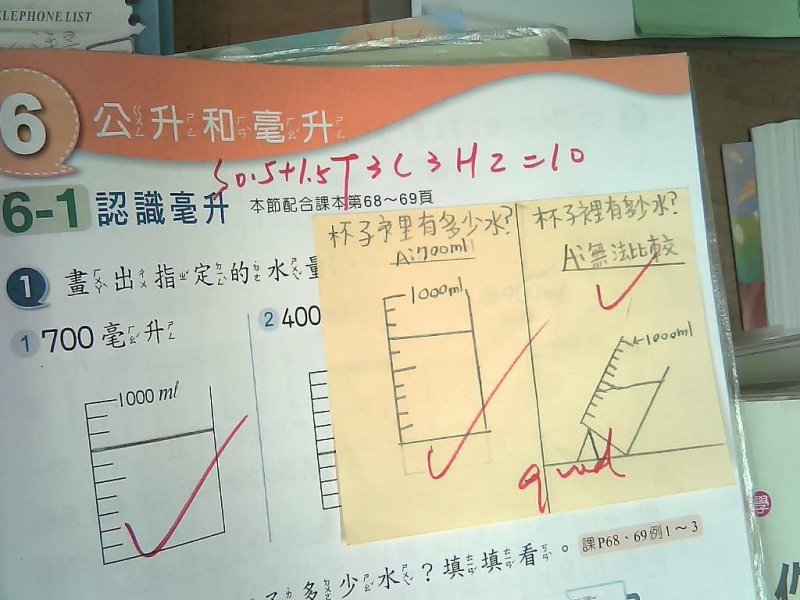 TELEPHONE LIST
6 公升和毫升
0.5+1.5T3C3H2=10
6-1 認識毫升 本節配合課本第68～69頁
1 畫出指定的水量
1 700毫升
2 400
1000 ml
杯子裡有多少水?
A:700ml
1000ml
杯子裡有多少水?
A:無法比較
1000ml
good
多少水？填填看。
課P68、69例1～3
學